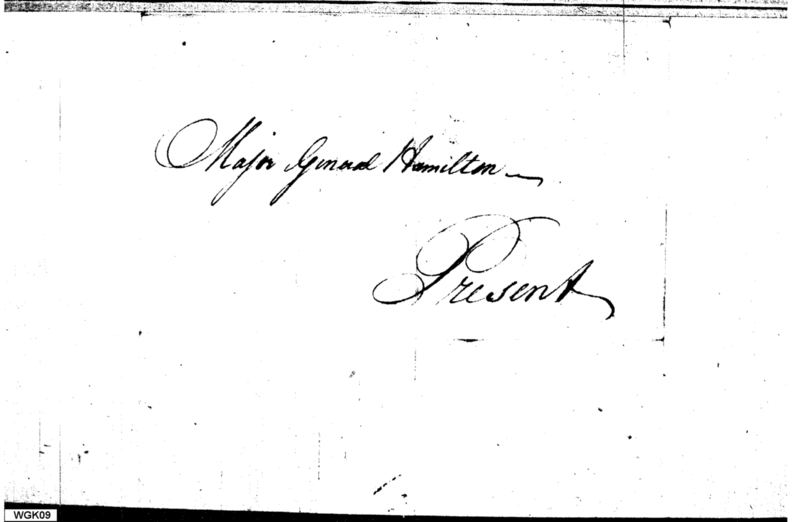 Major General Hamilton
Present
WGK09